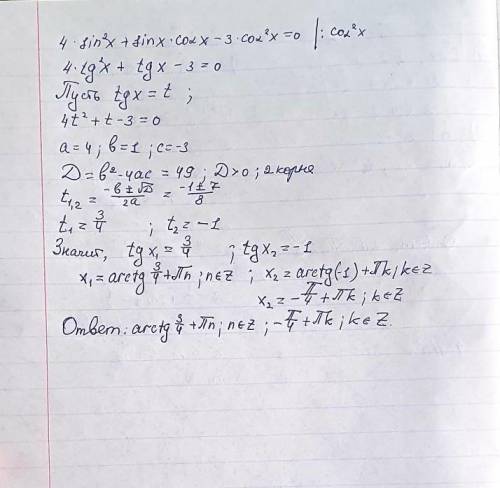 4·sin²x + sinx·cosx − 3·cos²x = 0 |: cos²x
4·tg²x + tgx − 3 = 0
Пусть tgx = t ;
4t² + t − 3 = 0
a = 4 ; b = 1 ; c = −3
D = b² − 4ac = 49 ; D > 0 ; 2 корня
t₁,₂ = (−b ± √D)/2a = (−1 ± 7)/8
t₁ = 3/4 ; t₂ = −1
Значит, tgx₁ = 3/4 ; tgx₂ = −1
x₁ = arctg 3/4 + πn ; n ∈ Z ; x₂ = arctg(−1) + πk ; k ∈ Z
x₂ = −π/4 + πk ; k ∈ Z
Ответ: arctg 3/4 + πn ; n ∈ Z ; −π/4 + πk ; k ∈ Z.